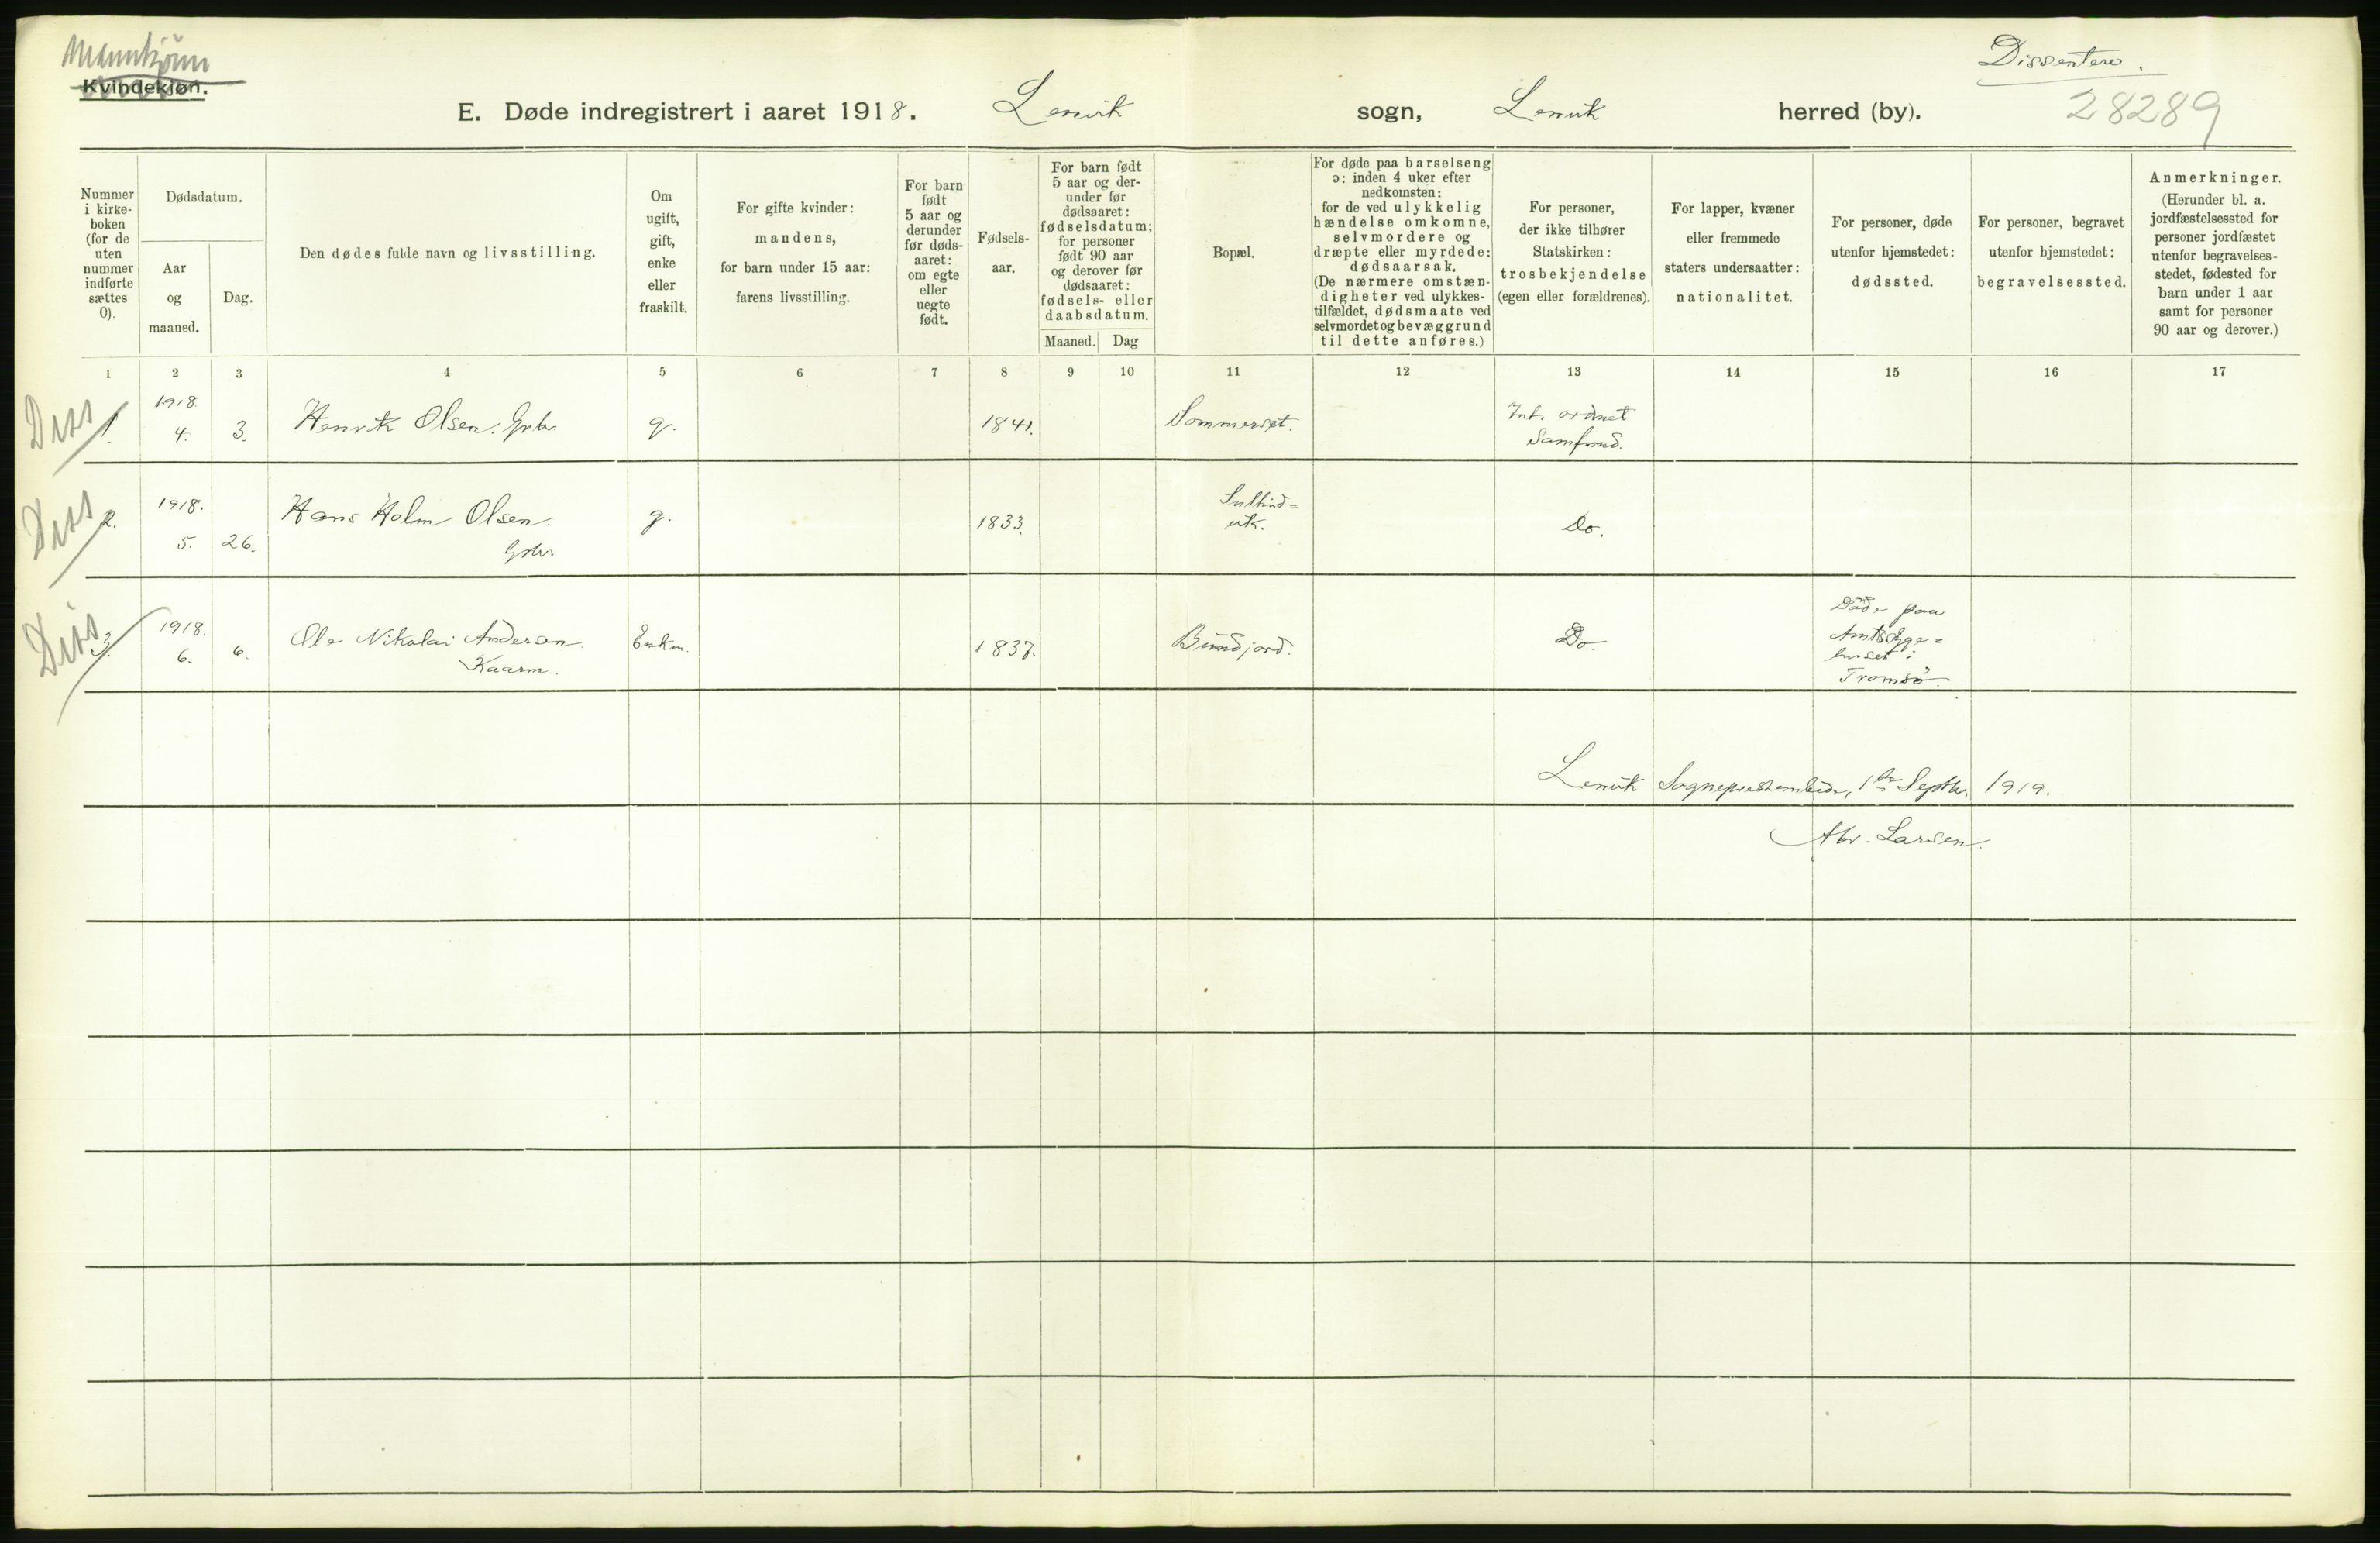 Mannkjønn
Kvindekjøn.
Dissentere.
28289
E. Døde indregistrert i aaret 1918. Lenvik sogn, Lenvik herred (by).
Nummer i kirke- boken (for de uten nummer indførte sættes 0).
Dødsdatum.
Aar og maaned.
Dag.
Den dødes fulde navn og livsstilling.
Om ugift, gift, enke eller fraskilt.
For gifte kvinder: mandens, for barn under 15 aar: farens livsstilling.
For barn født 5 aar og derunder før døds- aaret: om egte eller uegte født.
Fødsels- aar.
For barn født 5 aar og der- under før dødsaaret: fødselsdatum; for personer født 90 aar og derover før dødsaaret: fødsels- eller daabsdatum.
Maaned. Dag
Bopæl.
For døde paa barselseng ɔ: inden 4 uker efter nedkomsten: for de ved ulykkelig hændelse omkomne, selvmordere og dræpte eller myrdede: dødsaarsak. (De nærmere omstæn- digheter ved ulykkes- tilfældet, dødsmaate ved selvmordet og bevæggrund til dette anføres.)
For personer, der ikke tilhører Statskirken: trosbekjendelse (egen eller forældrenes).
For lapper, kvæner eller fremmede staters undersaatter: nationalitet.
For personer, døde utenfor hjemstedet: dødssted.
For personer, begravet utenfor hjemstedet: begravelsessted.
Anmerkninger. (Herunder bl. a. jordfæstelsessted for personer jordfæstet utenfor begravelses- stedet, fødested for barn under 1 aar samt for personer 90 aar og derover.)
1 2 3 4 5 6 7 8 9 10 11 12 13 14 15 16 17
Diss
1. 1918. 4. 3. Henrik Olsen. Grbr. g. 1841. Sommerset. Int. ordnet Samfund.
Diss
2. 1918. 5. 26. Hans Holm Olsen. Grbr g. 1833. Do.
Diss
3. 1918. 6. 6. Ole Nikolai Andersen. Kaarm. Enkm. 1837. Bundjord. Do. Døde paa Amtssyge= huset i Tromsø.
Lenvik Sogneprestembede, 1ste Septbr. 1919.
Abr. Larsen.